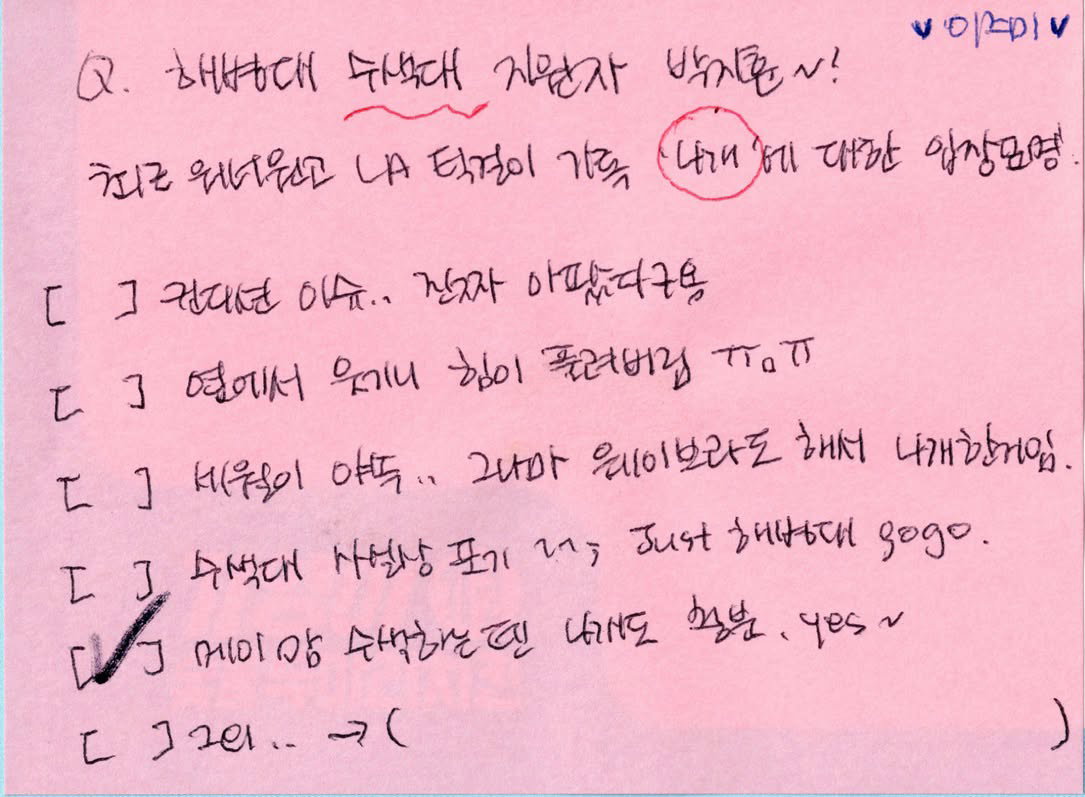 ♥이쯔미♥
Q. 해병대 수색대 지원자 박지훈~!
최근 워너원고 LA 턱걸이 기록 '4개'에 대한 입장표명.
[ ] 컨디션 이슈.. 진짜 아팠다구용
[ ] 옆에서 웃기니 힘이 풀려버림 ㅠㅁㅠ
[ ] 세월이 야속.. 그나마 웨이브라도 해서 4개한거임.
[ ] 수색대 사실상 포기 ;; Just 해병대 gogo.
[✓] 메이 맘 수색하는덴 4개도 충분. yes~
[ ] 그외.. → ( )